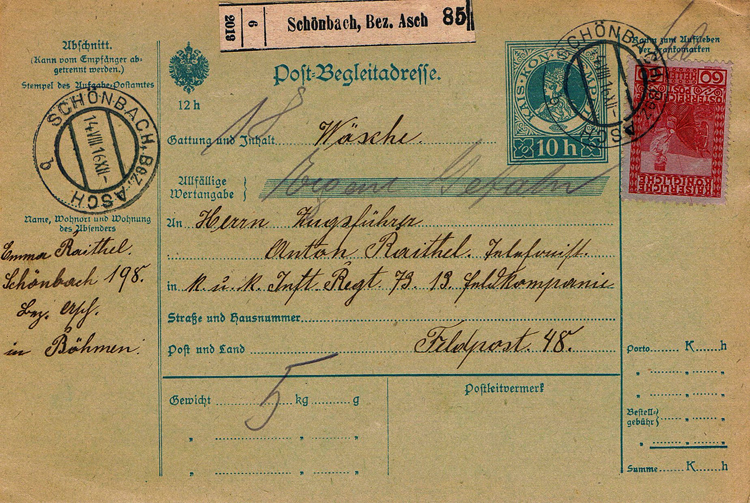 2019
6
Schönbach, Bez. Asch 85
Abschnitt.
(Kann vom Empfänger ab-
getrennt werden.)
Stempel des Aufgabe-Postamtes
SCHÖNBACH, BEZ. ASCH
14 VIII 16 XII-
b
Name, Wohnort und Wohnung
des Absenders
Emma Raithel.
Schönbach 198.
Bez. Asch.
in Böhmen.
Post-Begleitadresse.
12 h
Gattung und Inhalt Wäsche.
Allfällige
Wertangabe
Eigene Gefahr
An Herrn Zugsführer
Anton Raithel. Telefonist.
in k. u. k. Inft. Regt. 73. 13. Feldkompanie
Straße und Hausnummer
Post und Land Feldpost. 48.
Gewicht 5 kg g
" " "
" " "
Postleitvermerk
10 h
SCHÖNBACH, BEZ. ASCH
Raum zum Aufkleben
der Frankomarken
60
Porto K h
" " "
" " "
Bestell-
gebühr
" " "
Summe K h